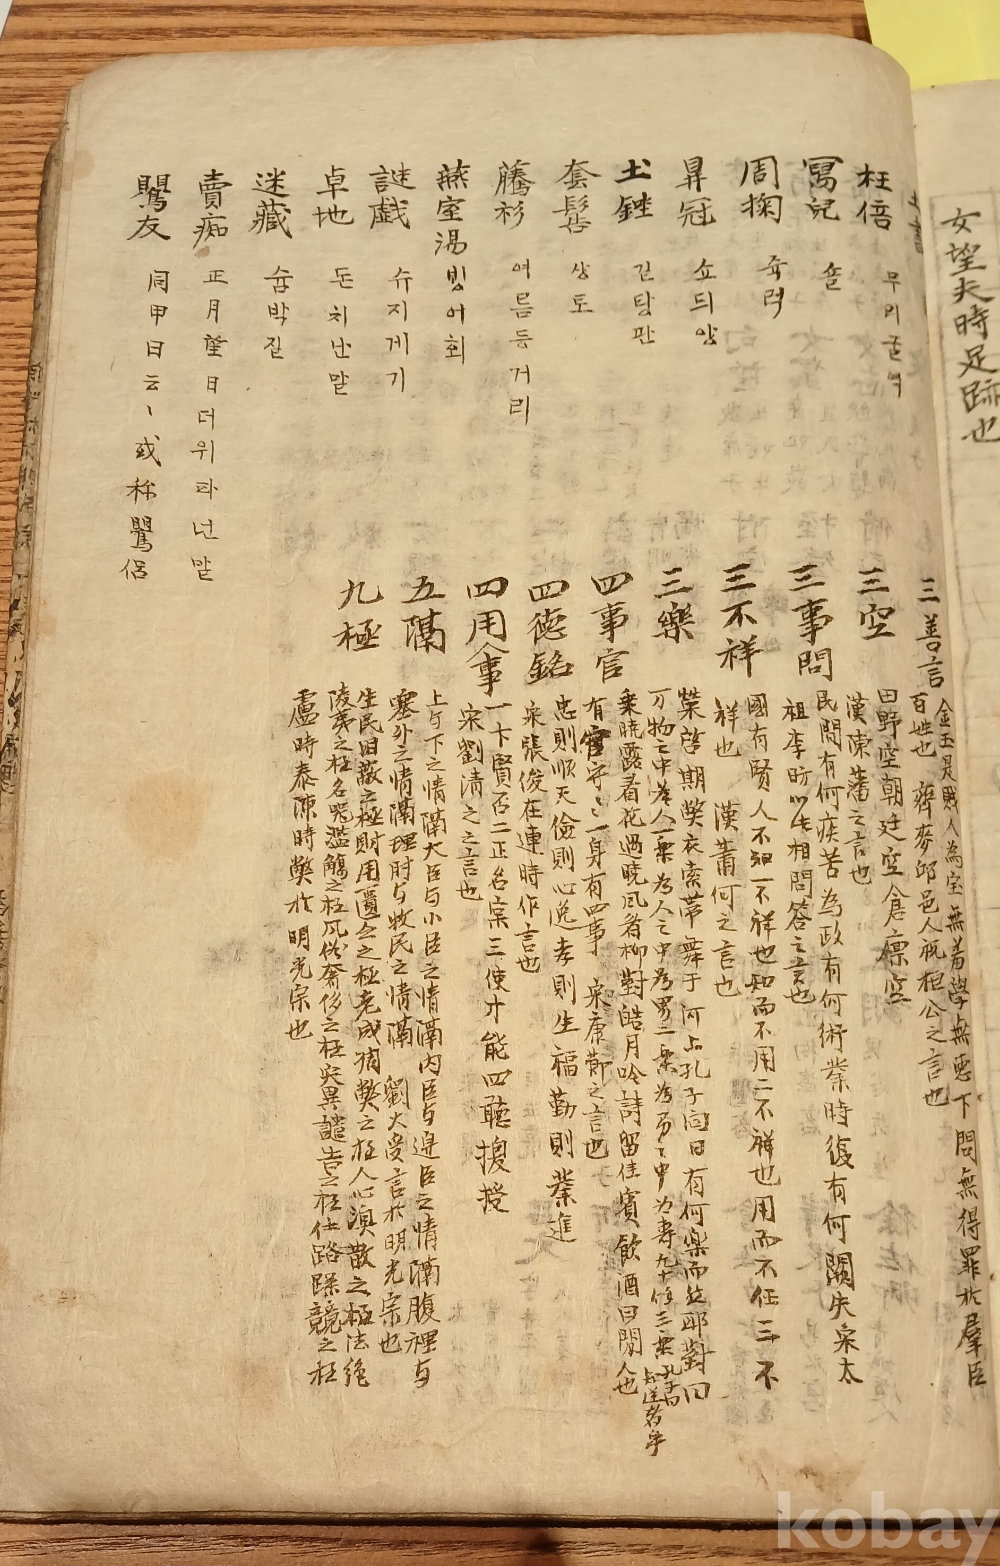 女望夫時足跡也
土書
枉倍 무리굴억
寫兒 숄
周掬 쥭력
昇冠 쇼듸양
土銼 긴탕판
套髻 상토
騰衫 어름등거리
燕室湯 빙어회
謎戱 슈지게기
卓地 돈치난말
迷藏 슘박질
賣痴 正月望日더위파넌말
鷪友 同甲日云丶或称鷪侶
三善言 金玉是賎人為宝無若學無恧下問無得罪於羣臣
百姓也 齊麥邱邑人祝桓公之言也
三空 田野空朝廷空倉廪空
漢陳蕃之言也
三事問 民間有何疾苦為政有何術業時復有何闕失宋太
祖李昉以此相問答之言也
三不祥 國有賢人不知一不祥也知而不用二不祥也用而不任三不
祥也 漢蕭何之言也
三樂 榮啓期獘衣索帶舞于河上孔子问曰有何樂而然耶對曰
万物之中為人一樂為人之中為男二樂為男之中为寿九十作三樂孔子曰知送者乎
四事官 乗曉露看花過曉风看柳對皓月吟詩留佳賓飲酒曰閒人也
有官守之一身有四事 宋康節之言也
四德銘 忠則順天儉則心逸孝則生福勤則業進
宋張俊在連時作言也
四用人事 一卞賢否二正名宲三使才能四聴援授
宋劉清之之言也
五隔 上与下之情隔大臣与小臣之情隔内臣与邊臣之情隔腹裡与
塞外之情隔理財与牧民之情隔 劉大受言於明光宗也
九極 生民旧蔽之極財用匱乏之極老成獨獘之極人心渙散之極法絶
陵夷之極名器濫觴之極风俗奢侈之極灾異譴告之極仕路躁競之極
盧時泰陳時獘於明光宗也
kobay